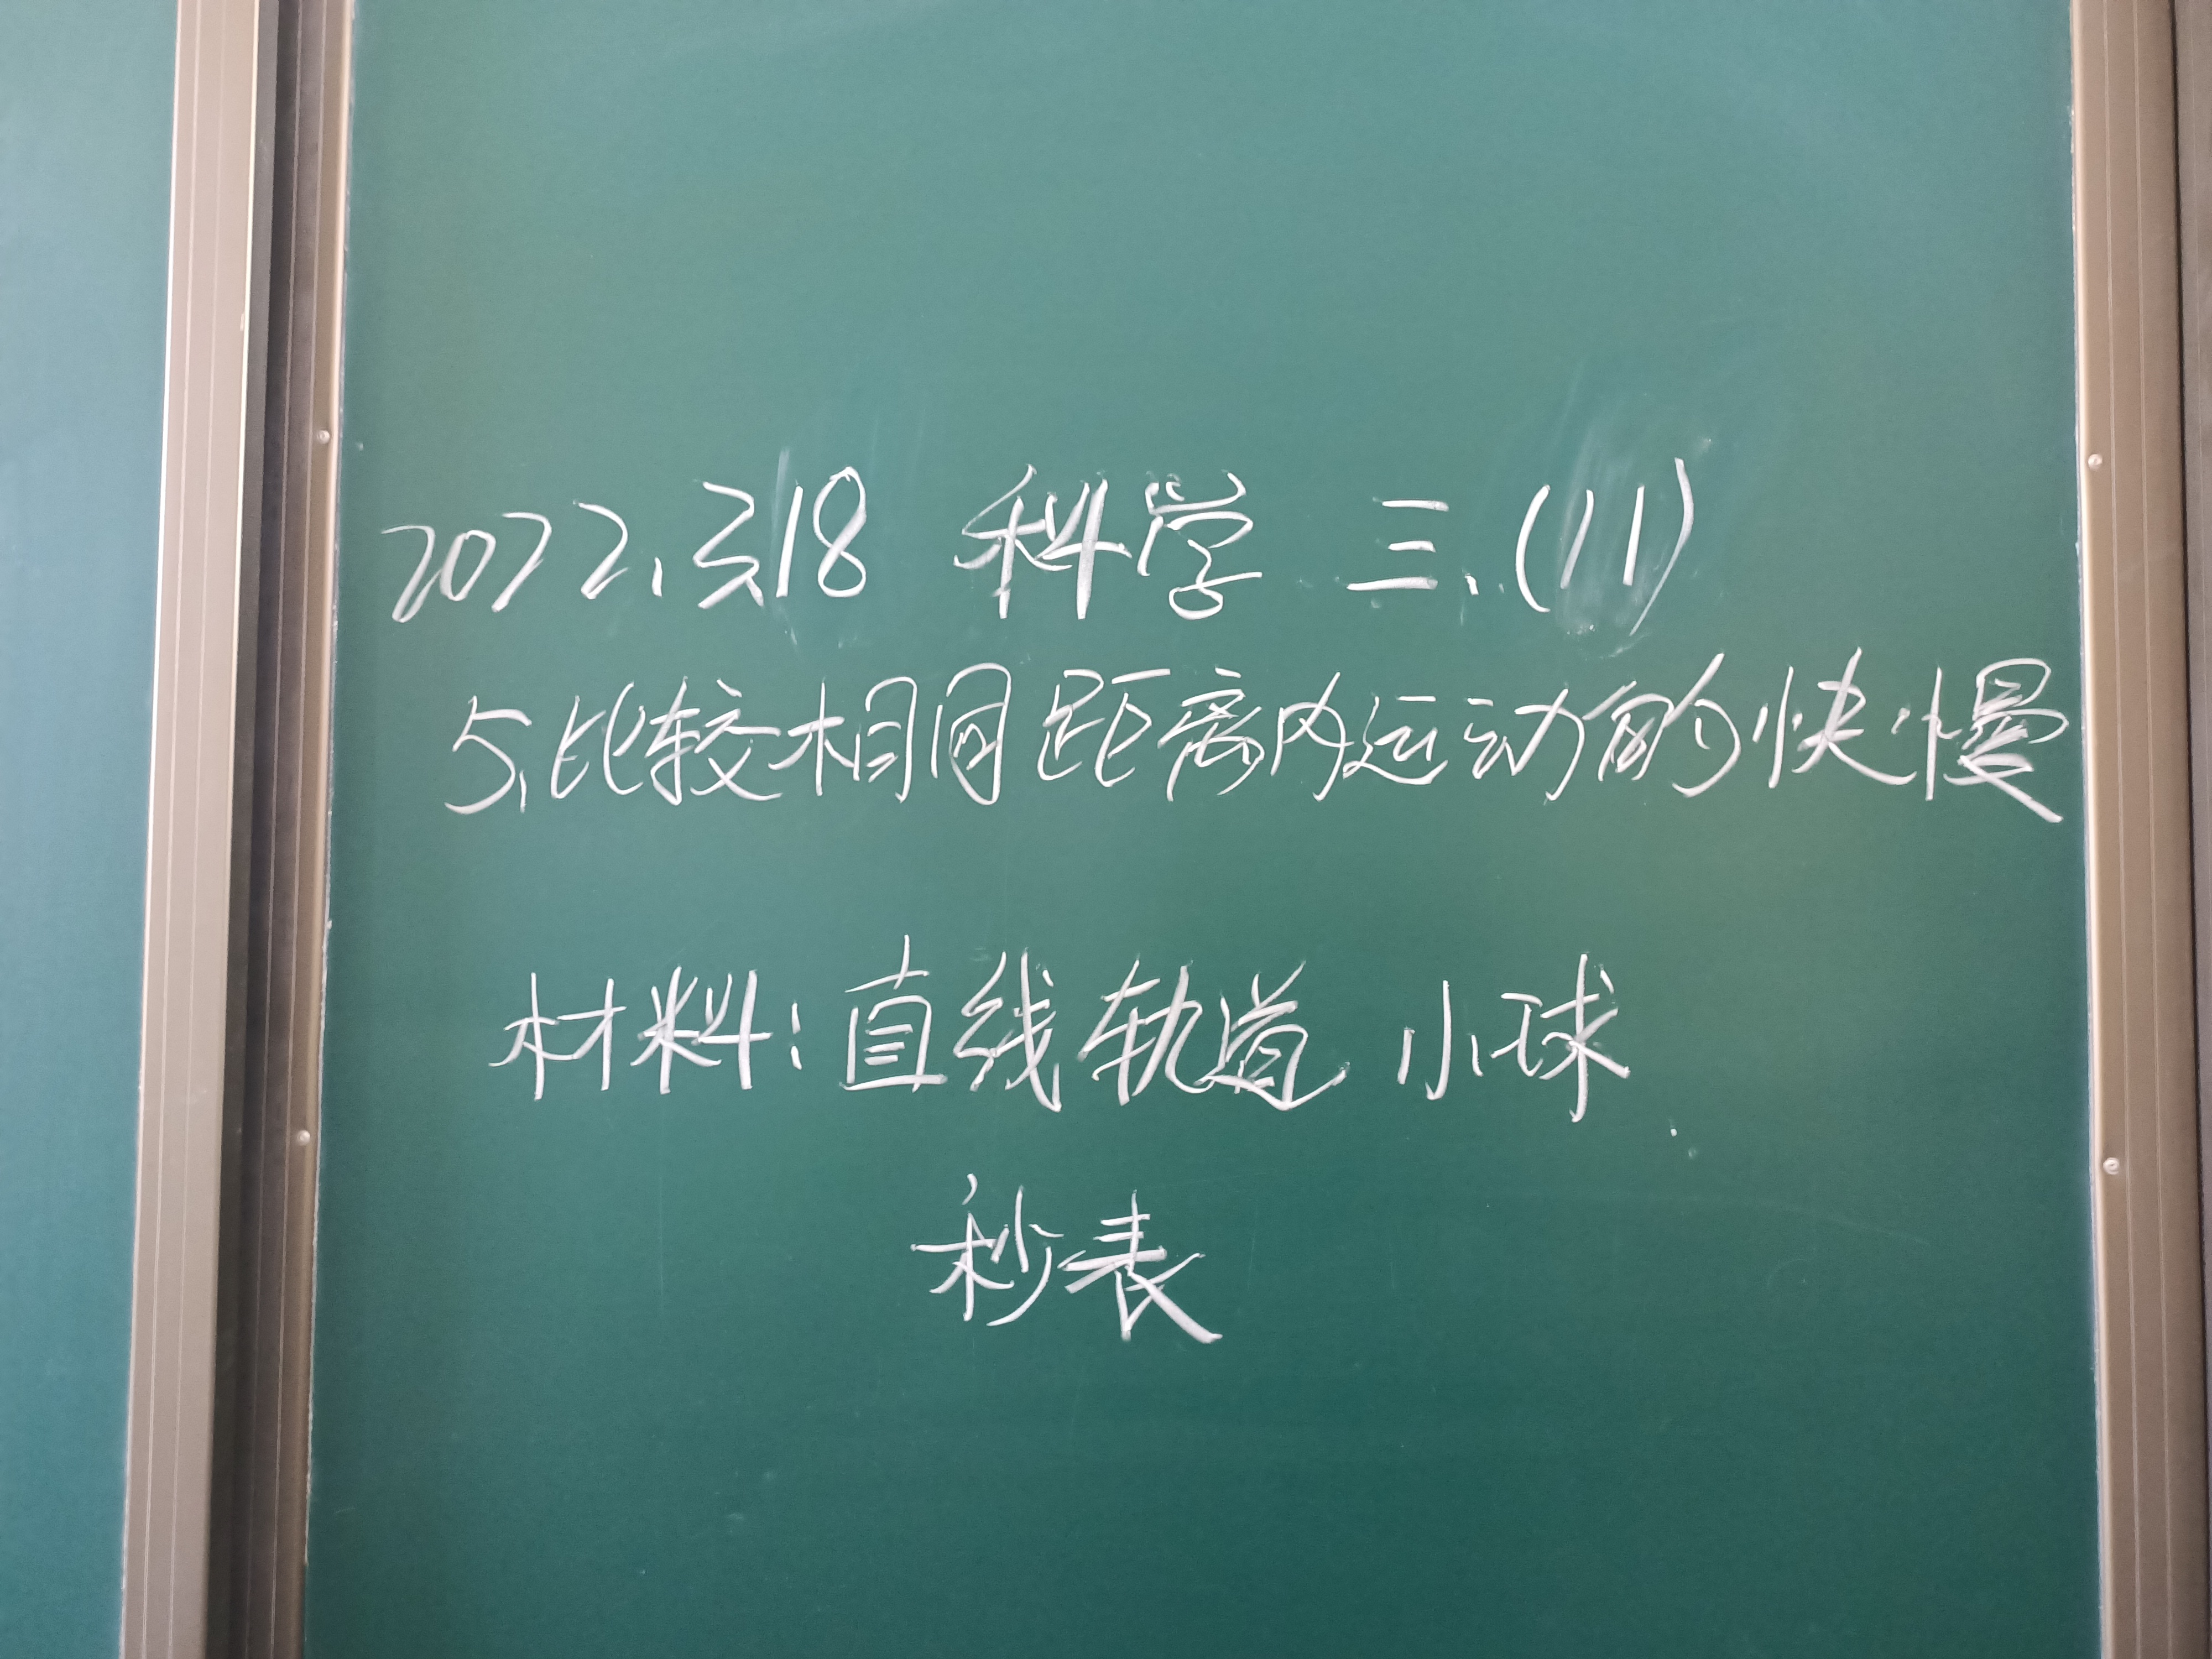 2022.3.18 科学 三.(11)
5.比较相同距离内运动的快慢
材料:直线轨道 小球
秒表